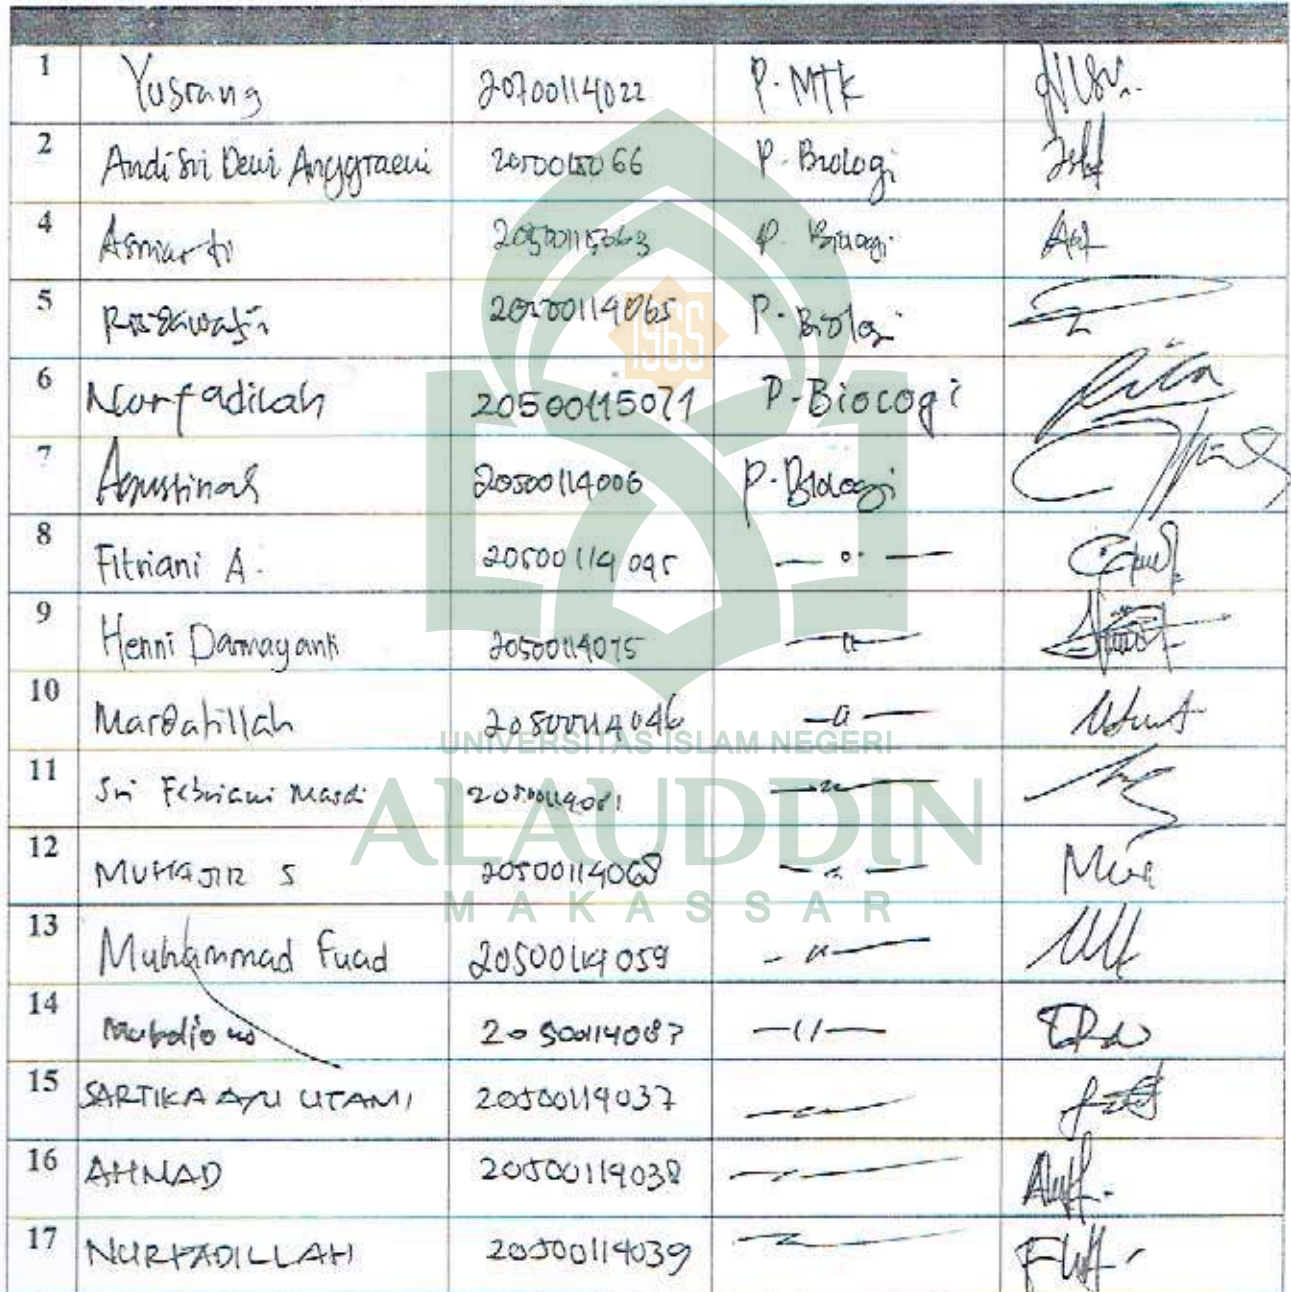 1 Yusrang 20700114022 P. MTK
2 Andi Sri Dewi Anggraeni 20500115066 P. Biologi
4 Asmiarti 20500115063 P. Biologi
5 20500114065 P. Biologi
6 Nurfadilah 20500115071 P-Biologi
7 Agustinah 20500114006 P-Biologi
8 Fitriani A. 20500114095 — 〃 —
9 Henni Darmayanti 20500114075 — 〃 —
10 Mardatillah 20500114046 — 〃 —
UNIVERSITAS ISLAM NEGERI
11 Sri Febriani Masdi 20500114081 — 〃 —
ALAUDDIN
12 MUHAJIR S 20500114068 — 〃 —
MAKASSAR
13 Muhammad Fuad 20500114059 — 〃 —
14 20500114087 — 〃 —
15 SARTIKA AYU UTAMI 20500114037 — 〃 —
16 AHMAD 20500114038 — 〃 —
17 NURFADILLAH 20500114039 — 〃 —
1965